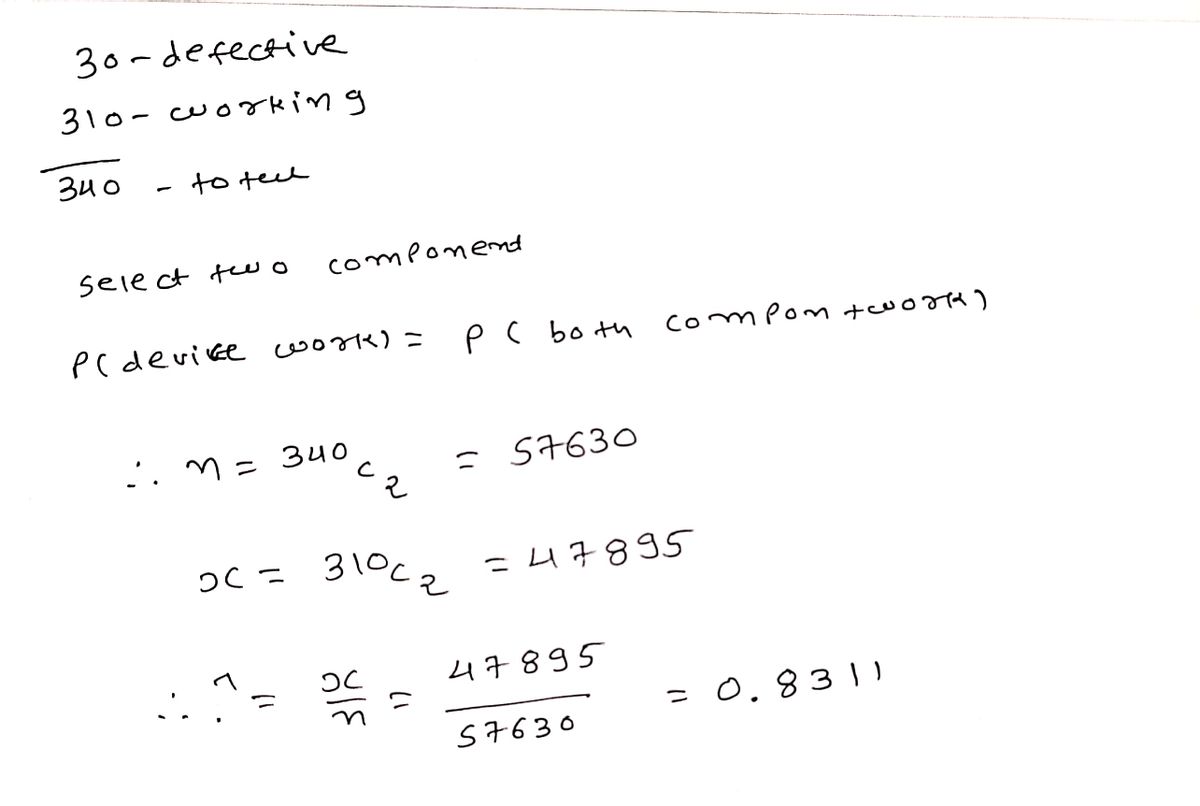 30 - defective
310 - working
340 - total
select two component
P(device work) = P( both compon twork)
∴ n = 340 c 2 = 57630
x = 310 c 2 = 47895
∴ = x/n = 47895/57630 = 0.8311